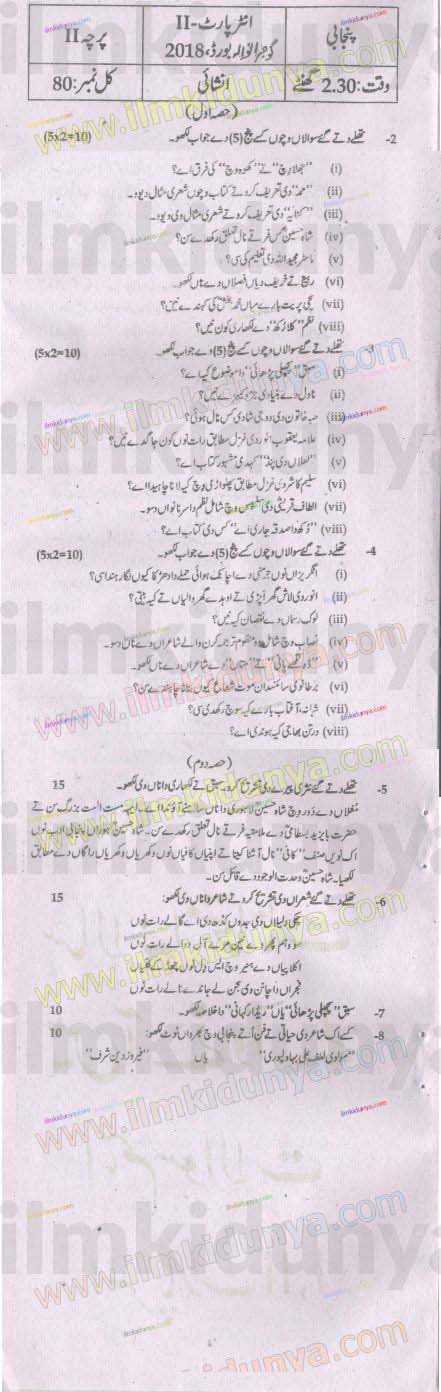 پنجابی
انٹر پارٹ-II
گوجرانوالہ بورڈ، 2018
پرچہ II
وقت: 2.30 گھنٹے
انشائی
کل نمبر: 80
(حصہ اول)
2- تھلے دتے گئے سوالاں وچوں کسے پنج (5) دے جواب لکھو۔ (5x2=10)
(i) تے "کھوہ وچ" کی فرق اے؟
(ii) "حمد" دی تعریف کرو تے کتاب وچوں شعری مثال دیو۔
(iii) دی تعریف کرو تے شعری مثال وی دیو۔
(iv) شاہ حسینؒ کس فرقے نال تعلق رکھدے سن؟
(v) ماسٹر مجید اللہ دی تعلیم کی سی؟
(vi) ربیع تے خریف دیاں فصلاں دے ناں لکھو۔
(vii) سچی پریت بارے میاں محمد بخشؒ کی کہندے نیں؟
(viii) نظم دے لکھاری کون نیں؟
3- تھلے دتے گئے سوالاں وچوں کسے پنج (5) دے جواب لکھو۔ (5x2=10)
(i) سبق "پچھلی پڑھائی" دا موضوع کیہ اے؟
(ii) ناول دے بنیادی جز کیہڑے نیں؟
(iii) حبہ خاتون دی دوجی شادی کس نال ہوئی؟
(iv) علامہ یعقوب انور دی غزل مطابق رات نوں کون جاگدے نیں؟
(v) "لعلاں دی پنڈ" کہدی مشہور کتاب اے؟
(vi) سلیم کاشر دی غزل مطابق پھلواڑی وچ کیہ لانا چاہیدا اے؟
(vii) الطاف قریشی دی وچ شامل نظم دا سرنانواں دسو۔
(viii) "دکھ دا صدقہ جاری اے" کس دی کتاب اے؟
4- تھلے دتے گئے سوالاں وچوں کسے پنج (5) دے جواب لکھو۔ (5x2=10)
(i) انگریزاں نوں جرمنی دے اچانک ہوائی حملے دا دھڑکا کیوں لگا رہندا سی؟
(ii) انور دی لاش گھر اپڑی تے اوہدے گھر والیاں تے کیہ بیتی؟
(iii) لوک رسماں دے نقصان کیہ نیں؟
(iv) نصاب وچ شامل دو منظوم ترجمہ کرن والے شاعراں دے ناں دسو۔
(v) تے دے شاعراں دے ناں لکھو۔
(vi) برطانوی سائنسدان موت شعاع کیوں بنانا چاہندے سن؟
(vii) شبانہ آفتاب بارے کیہ سوچ رکھدی سی؟
(viii) ورتن بھاجی کیہ ہوندی اے؟
(حصہ دوم)
5- تھلے دتے گئے نثری پیرے دی تشریح کرو۔ سبق تے لکھاری دا ناں وی لکھو۔ 15
مغلاں دے دور وچ شاہ حسین لاہوری دا ناں سامنے آؤندا اے۔ ایہہ مست الست بزرگ سن تے
حضرت بایزید بسطامی دے ملامتیہ فرقے نال تعلق رکھدے سن۔ شاہ حسینؒ ہوراں پنجابی ادب نوں
اک نویں صنف "کافی" نال آشنا کیتا تے اپنیاں کافیاں نوں وکھریاں وکھریاں راگاں دے مطابق
لکھیا۔ شاہ حسینؒ وحدت الوجود دے قائل سن۔
6- تھلے دتے گئے شعراں دی تشریح کرو تے شاعر دا ناں وی لکھو: 15
چکی دلیلاں دی جدوں کڈھ دی اے گالے رات نوں
سوہم پھر دے نیں میرے آل دوالے رات نوں
اکلاپیاں دے ہنیر وچ ایس دل نوں چھڈ کے کلیاں
فجراں دا چانن دی سجن لے جاندے نالے رات نوں
7- سبق "پچھلی پڑھائی" یاں "ریڈار کہانی" دا خلاصہ لکھو۔ 10
8- کسے اک شاعر دی حیاتی تے فن اتے پنجابی وچ بھرواں نوٹ لکھو: 10
"مولوی لطف علی بہاولپوری" یاں "فیروز دین شرف"